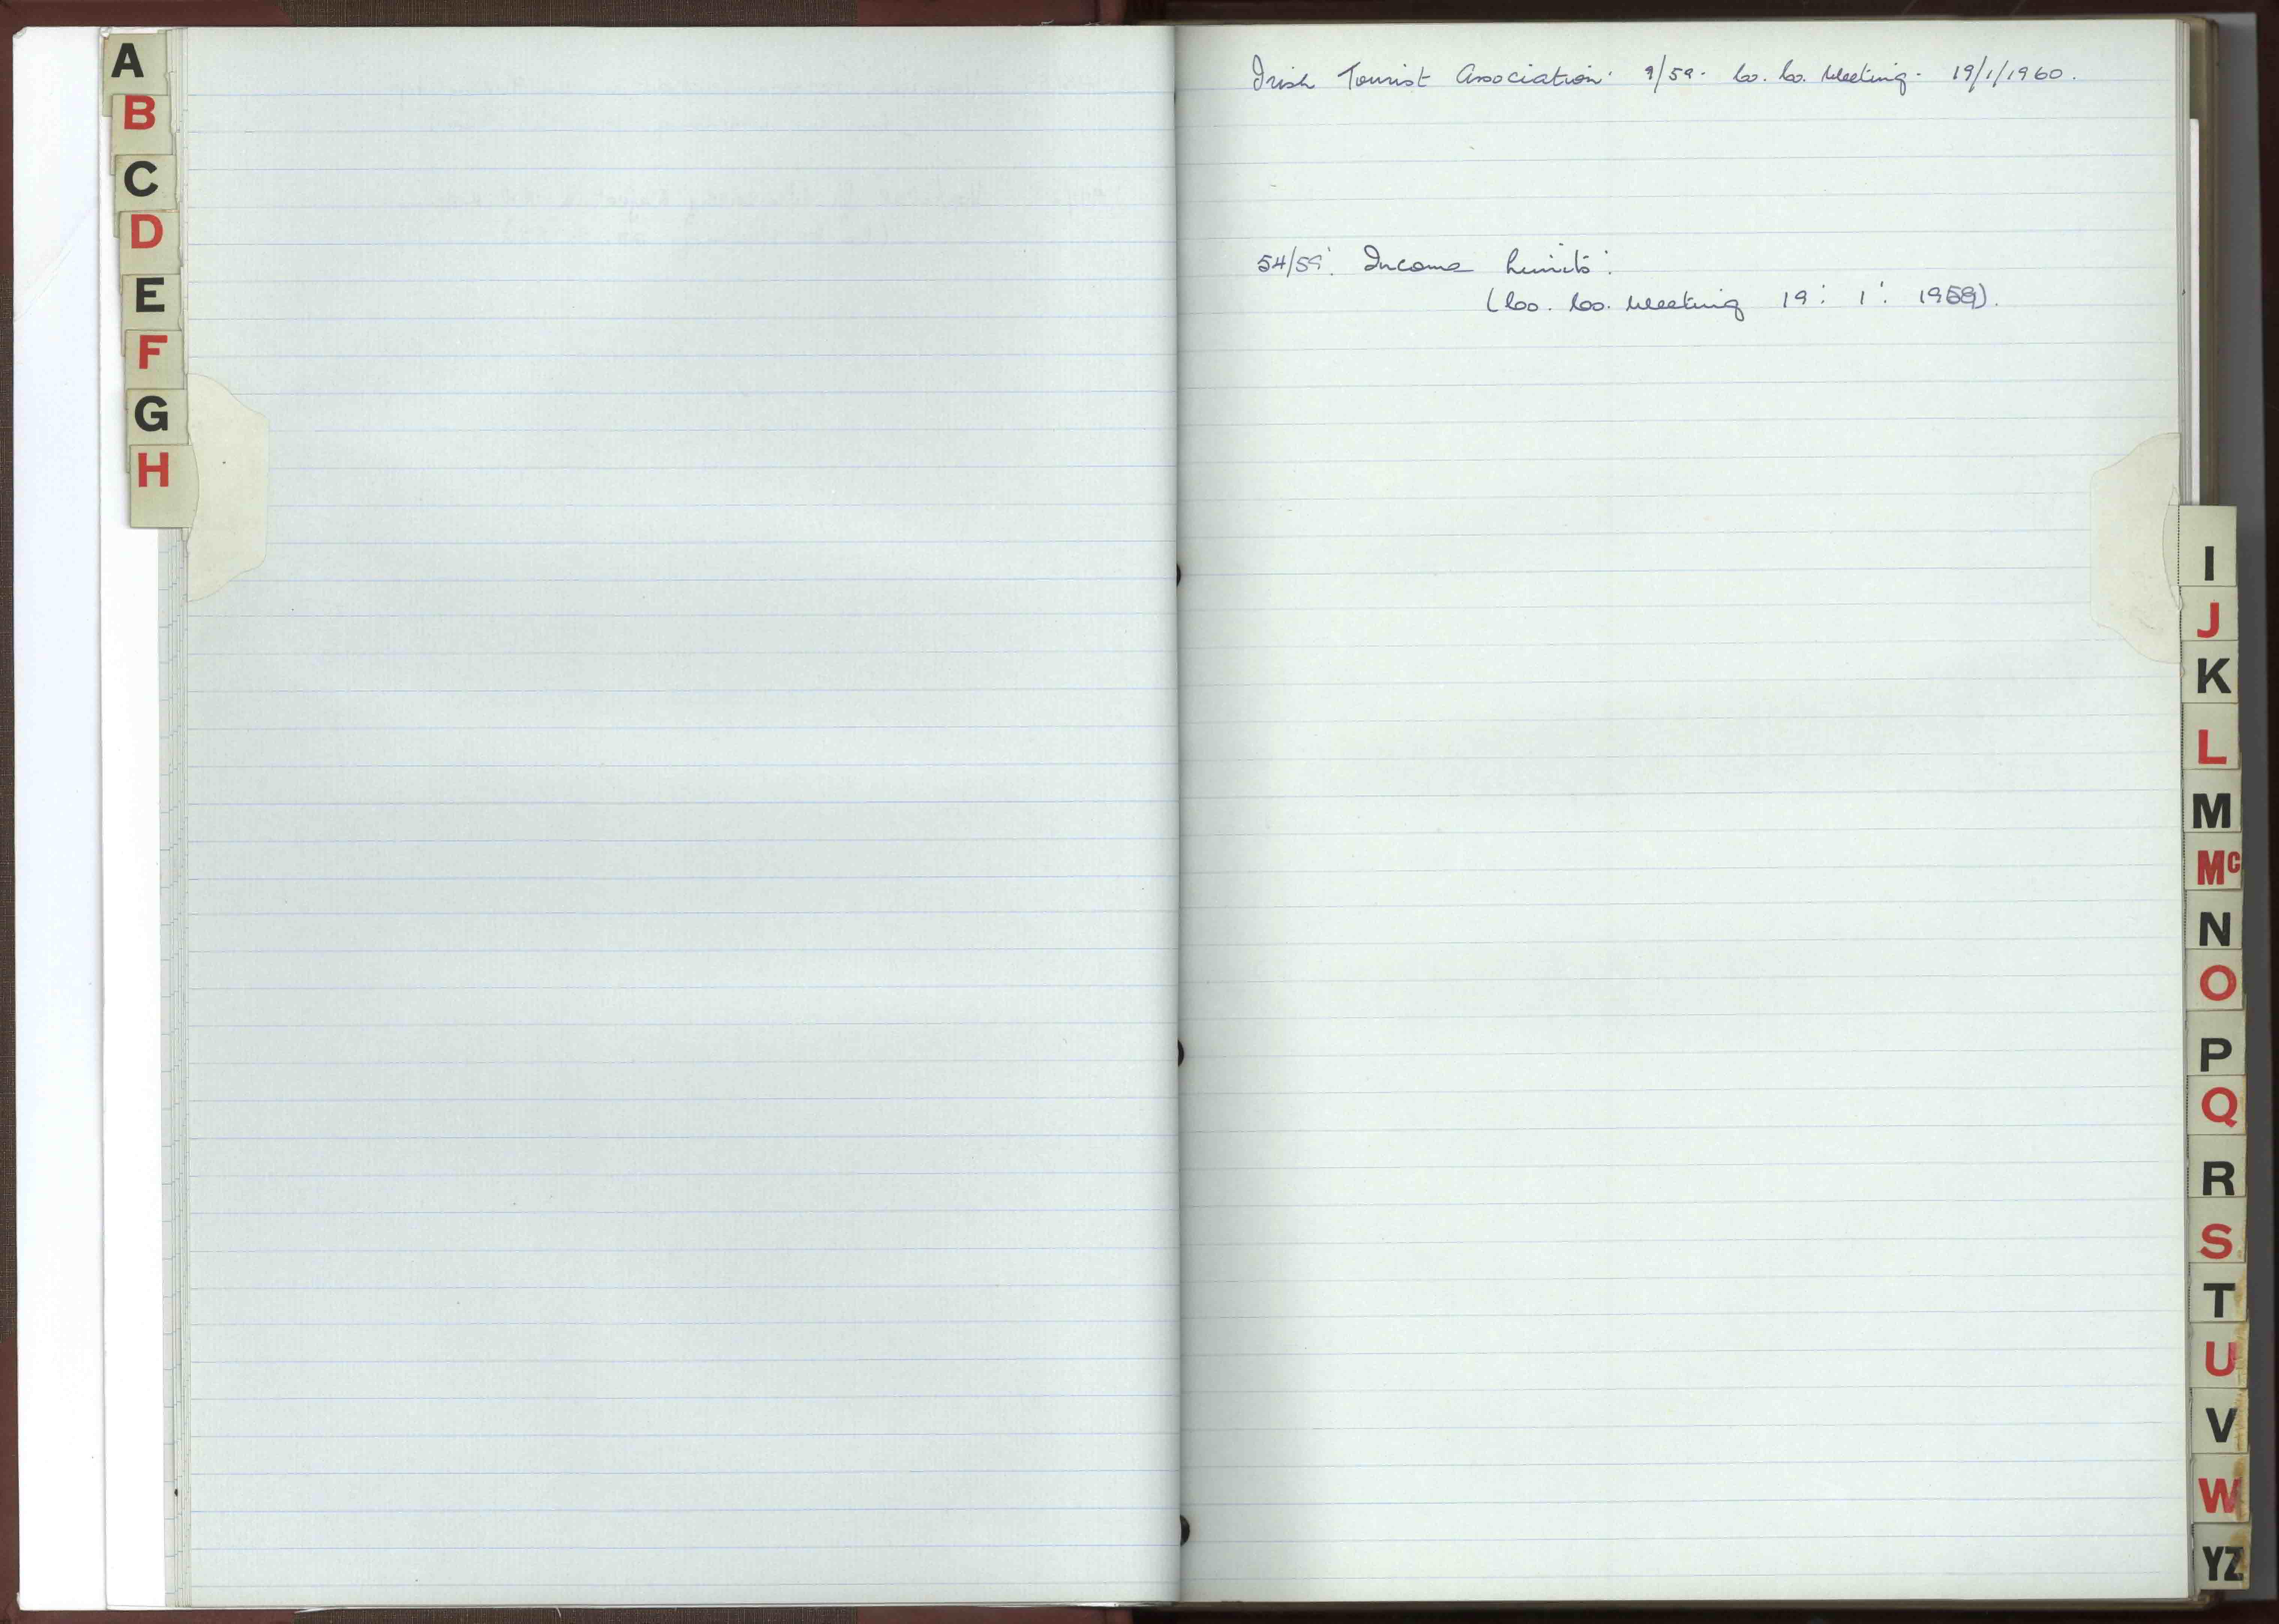 A
B
C
D
E
F
G
H
Irish Tourist Association. 9/59. Co. Co. Meeting. 19/1/1960.
54/59. Income Limits.
(Co. Co. Meeting 19. 1. 1959).
I
J
K
L
M
Mc
N
O
P
Q
R
S
T
U
V
W
YZ